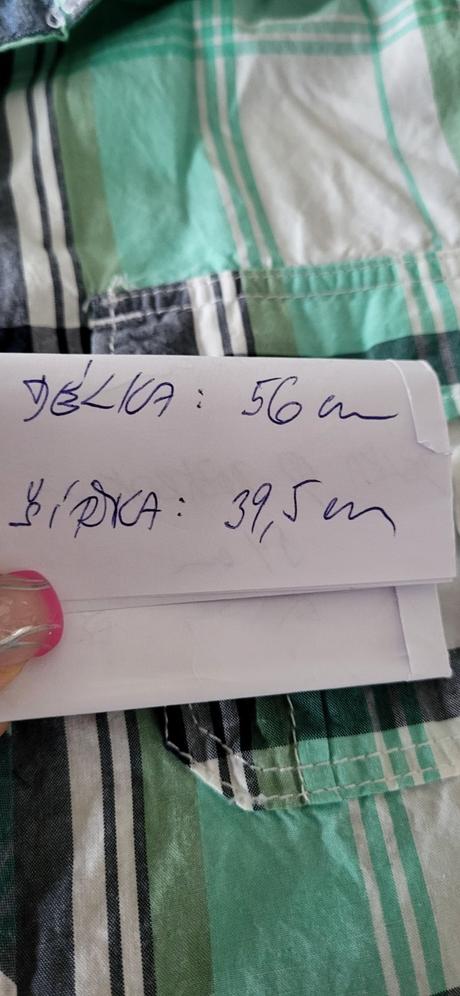 DÉLKA: 56 cm
ŠÍŘKA: 39,5 cm